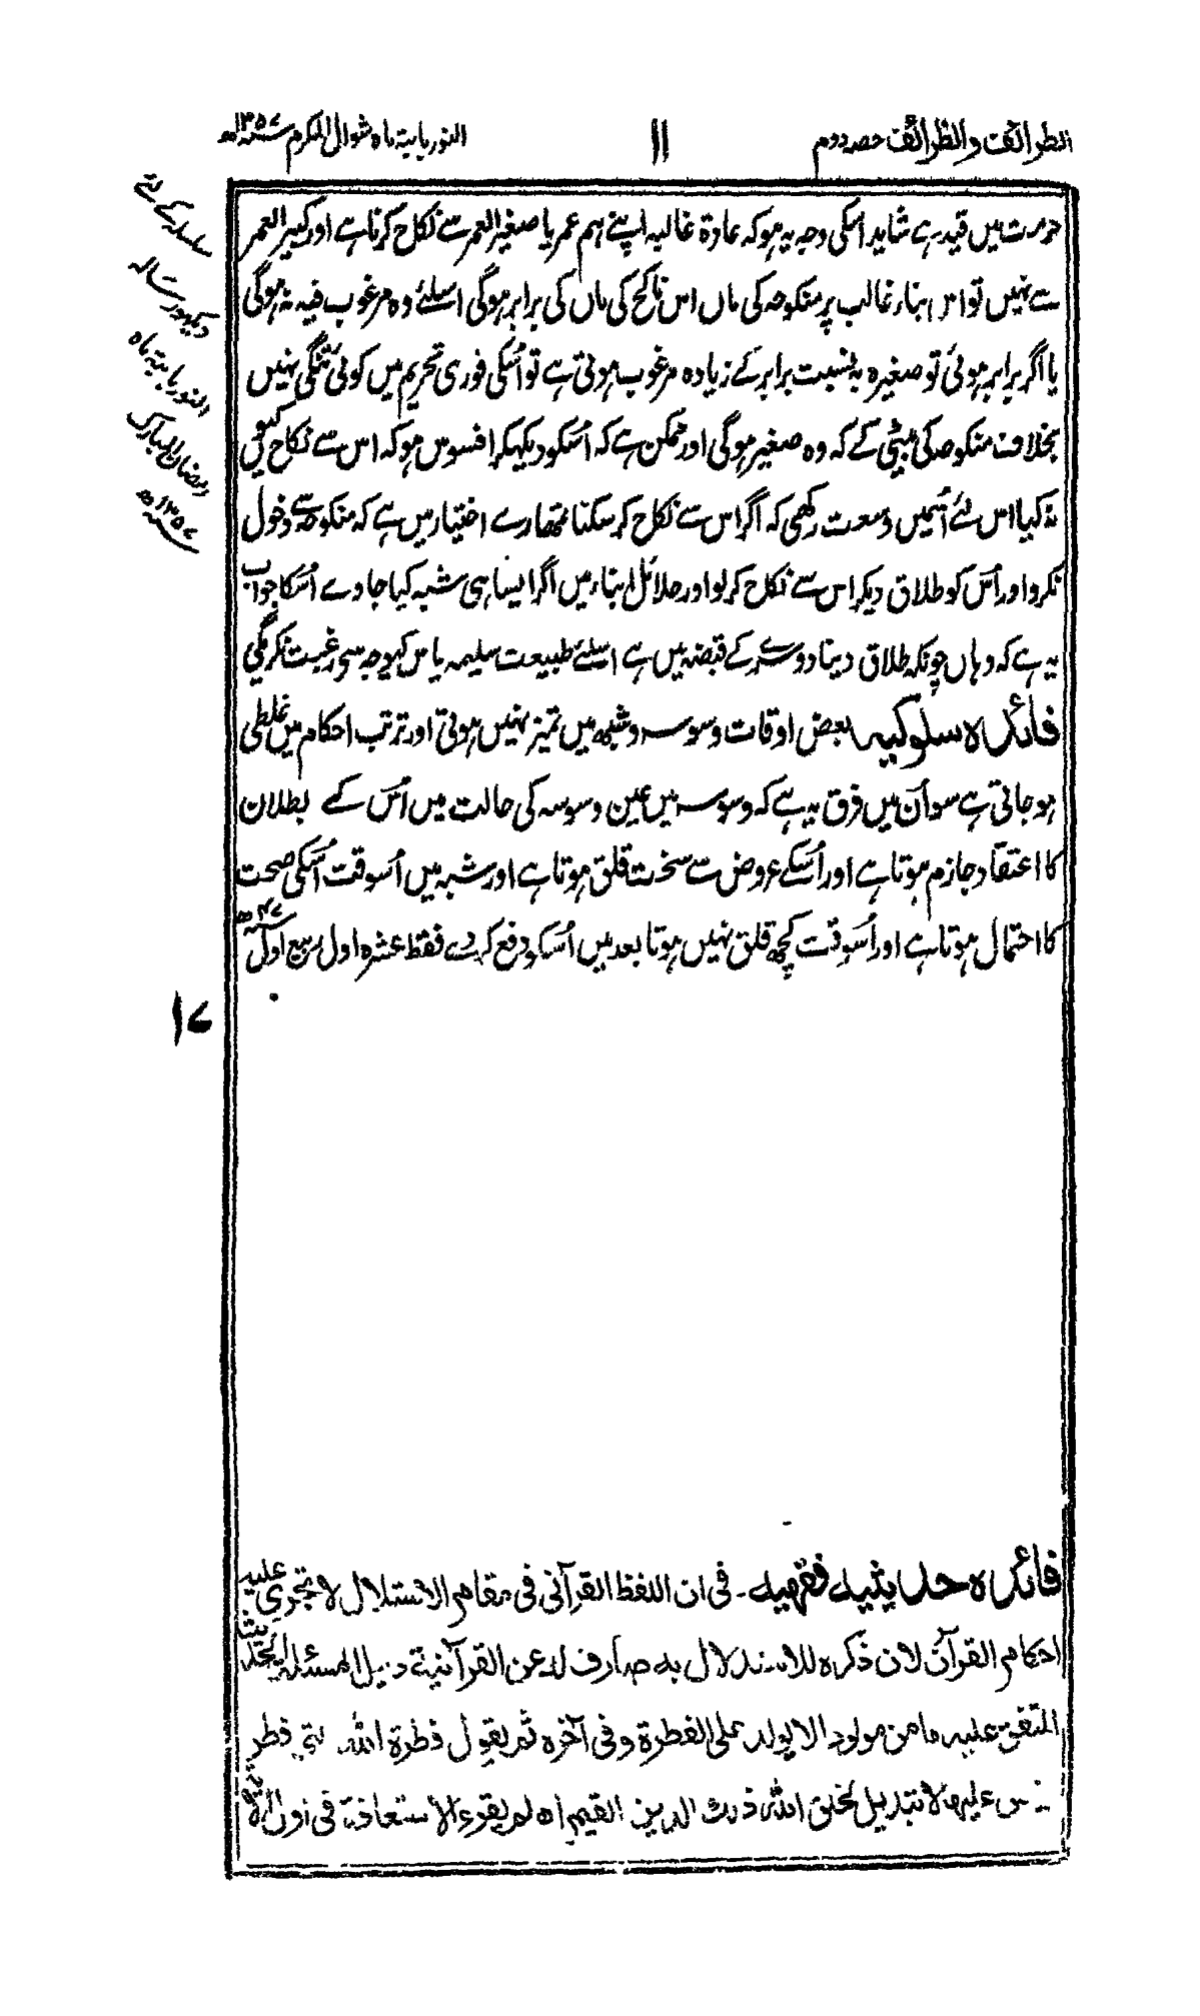 الطرائف والظرائف حصہ دوم
۱۱
النور بابتہ ماہ شوال المکرم ۱۳۵۷ھ
حرمت میں قید ہے شاید اسکی وجہ یہ ہو کہ عادۃ غالبہ اپنے ہم عمر یا صغیر العمر سے نکاح کرنا ہے اور کبیر العمر
سے نہیں تو اس بناء غالب پر منکوحہ کی ماں اس ناکح کی ماں کی برابر ہوگی اسلئے وہ مرغوب فیہ نہ ہوگی
یا اگر برابر ہوئی تو صغیرہ بہ نسبت برابر کے زیادہ مرغوب ہوتی ہے تو اُسکی فوری تحریم میں کوئی تنگی نہیں
بخلاف منکوحہ کی بیٹی کے کہ وہ صغیر ہوگی اور ممکن ہے کہ اُسکو دیکھکر افسوس ہو کہ اس سے نکاح کیوں
نہ کیا اس لئے اُسمیں وسعت رکھی کہ اگر اس سے نکاح کر سکنا تمھارے اختیار میں ہے کہ منکوحہ سے دخول
نکرو اور اُس کو طلاق دیکر اس سے نکاح کر لو اور حلائل ابناء میں اگر ایسا ہی شبہ کیا جاوے اُسکا جواب
یہ ہے کہ وہاں چونکہ طلاق دینا دوسرے کے قبضہ میں ہے اسلئے طبیعت سلیمہ یاس کیوجہ سے رغبت نکرے گی
فائدہ سلوکیہ بعض اوقات وسوسہ وشبہ میں تمیز نہیں ہوتی اور ترتب احکام میں غلطی
ہو جاتی ہے سو اُن میں فرق یہ ہے کہ وسوسہ میں عین وسوسہ کی حالت میں اُس کے بطلان
کا اعتقاد جازم ہوتا ہے اور اُسکے عروض سے سخت قلق ہوتا ہے اور شبہ میں اُسوقت اُسکی صحت
کا احتمال ہوتا ہے اور اُسوقت کچھ قلق نہیں ہوتا بعد میں اُسکو دفع کر دے فقط عشرہ اول ربیع اول ۴۷ھ
فائدہ حدیثیہ فقہیہ ۔ فی ان اللفظ القرآنی فی مقام الاستدلال لا تجری علیہ
احکام القرآن لان ذکرہ للاستدلال بہ صارف لہ عن القرآنیۃ دلیل المسئلۃ الحدیث
المتفق علیہ ما من مولود الا یولد علی الفطرۃ وفی آخرہ ثم یقول فطرۃ اللہ التی فطر
الناس علیہا لا تبدیل لخلق اللہ ذلک الدین القیم اہ لم یقرء الاستعاذۃ فی اول الآیۃ
سلسلہ کے لئے
دیکھو رسالہ
النور بابتہ ماہ
رمضان المبارک
۱۳۵۷ھ
۱۷